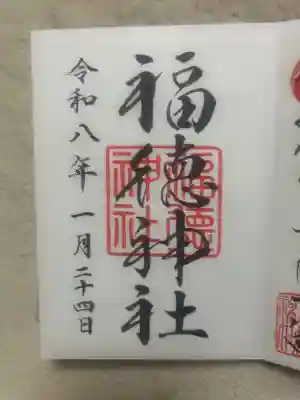 福徳神社
福徳
神社
令和八年 一月二十四日